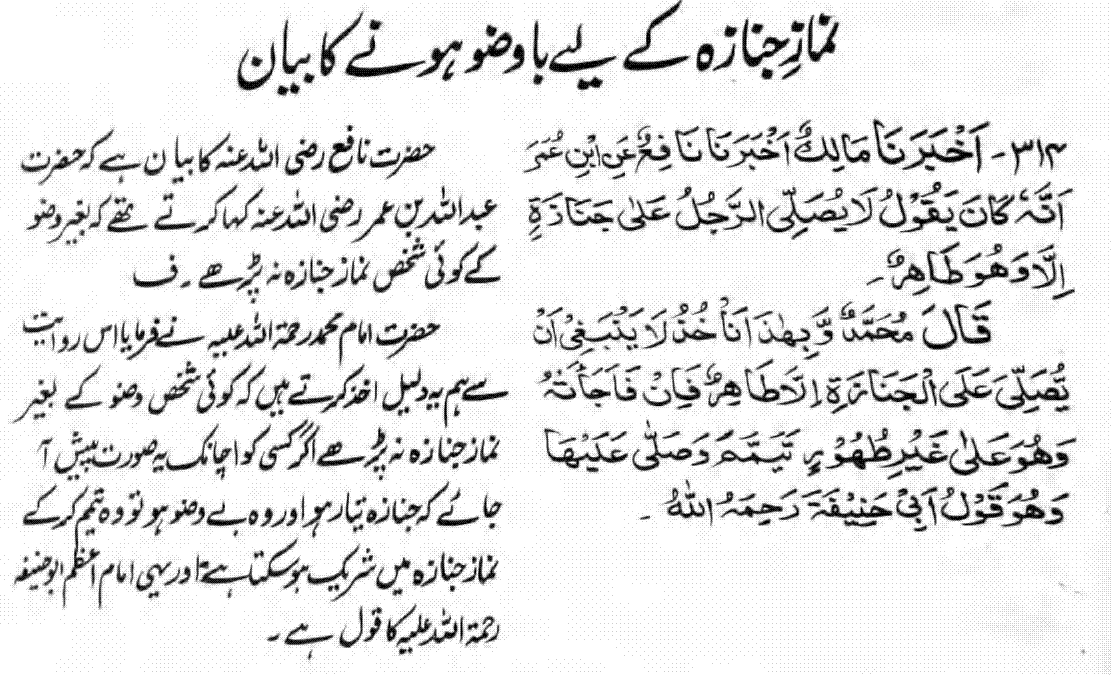 نمازِ جنازہ کے لیے باوضو ہونے کا بیان
۳۱۴۔ اَخْبَرَنَا مَالِكٌ اَخْبَرَنَا نَافِعٌ عَنِ ابْنِ عُمَرَ
اَنَّہٗ كَانَ يَقُوْلُ لَا يُصَلِّی الرَّجُلُ عَلٰی جَنَازَةٍ
اِلَّا وَهُوَ طَاهِرٌ۔
قَالَ مُحَمَّدٌ وَّ بِهٰذَا نَأْخُذُ لَا يَنْبَغِیْ اَنْ
يُّصَلِّیَ عَلَی الْجَنَازَةِ اِلَّا طَاهِرٌ فَاِنْ فَاجَأَتْہُ
وَهُوَ عَلٰی غَيْرِ طُهُوْرٍ تَيَمَّمَ وَصَلّٰی عَلَيْهَا
وَهُوَ قَوْلُ اَبِیْ حَنِيْفَةَ رَحِمَہُ اللّٰہُ ۔
حضرت نافع رضی اللہ عنہ کا بیان ہے کہ حضرت
عبداللہ بن عمر رضی اللہ عنہ کہا کرتے تھے کہ بغیر وضو
کے کوئی شخص نماز جنازہ نہ پڑھے ۔ ف
حضرت امام محمد رحمۃ اللہ علیہ نے فرمایا اس روایت
سے ہم یہ دلیل اخذ کرتے ہیں کہ کوئی شخص وضو کے بغیر
نماز جنازہ نہ پڑھے اگر کسی کو اچانک یہ صورت پیش آ
جائے کہ جنازہ تیار ہو اور وہ بے وضو ہو تو وہ تیمم کر کے
نماز جنازہ میں شریک ہو سکتا ہے اور یہی امام اعظم ابو حنیفہ
رحمۃ اللہ علیہ کا قول ہے ۔